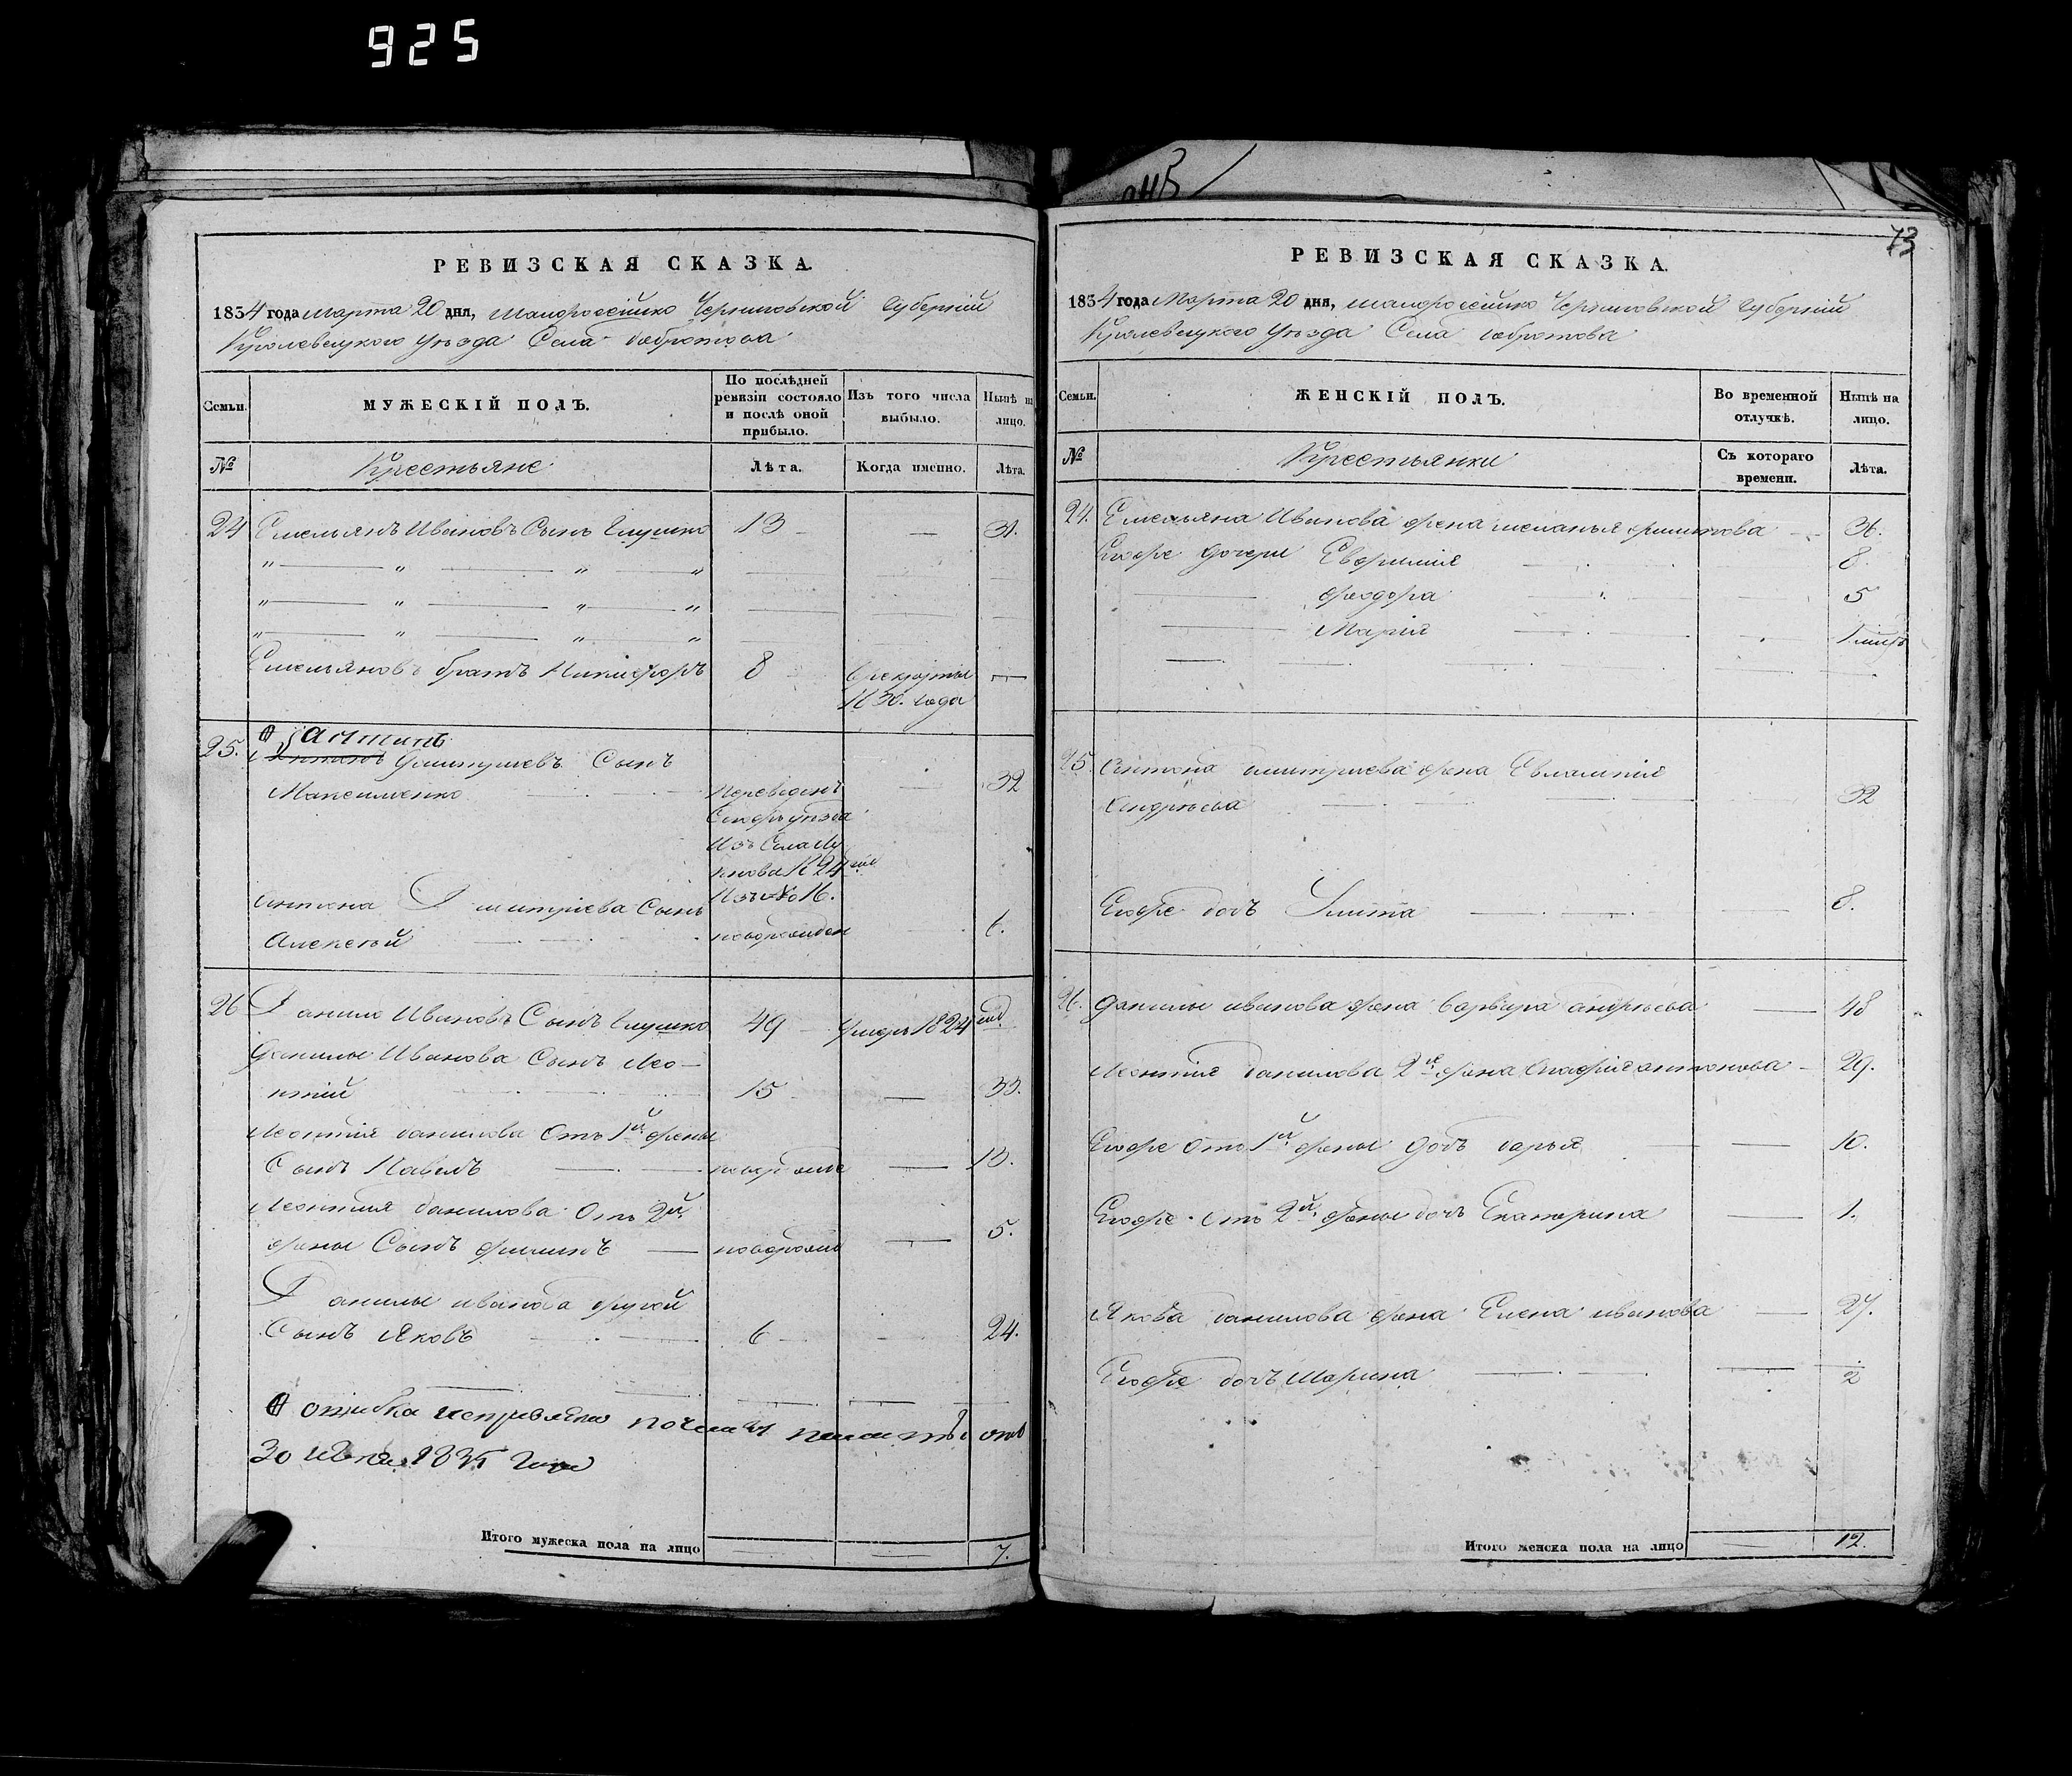 925
РЕВИЗСКАЯ СКАЗКА.
1834 года марта 20 дня, малороссійско Черниговской губерніи
Кролевецкого уезда Села добротова
Семьи. МУЖЕСКІЙ ПОЛЪ. По послѣдней ревизіи состояло и послѣ оной прибыло. Изъ того числа выбыло. Нынѣ на лицо.
№ Крестьяне Лѣта. Когда именно. Лѣта.
24 Емельянъ Ивановъ Сынъ Глушко 13 — 31.
Емельяновъ братъ Никифоръ 8 в рекруты —
1830. года
Антинъ
25. Дмитріевъ Сынъ
Максименко переведенъ — 32
изъ Села
1824
Изъ № 16.
Антона Дмитріева Сынъ
Алексей новорожден 6.
26 Данило Ивановъ Сынъ Глушко 49 умеръ 1824 год.
Данилы Иванова Сынъ Лео-
нтій 15 — 33.
Леонтія данилова Отъ 1й жены
Сынъ Павелъ новорожде — 13.
Леонтия данилова Отъ 2й
жены Сынъ филипъ — новорожде — 5.
Данилы иванова другой
Сынъ Яковъ 6 24.
ошибка исправлена
30 1835 года
Итого мужеска пола на лицо — — 7.
73
РЕВИЗСКАЯ СКАЗКА.
1834 года Марта 20 дня, малороссійско Черниговской губерніи
Кролевецкого уезда Села добротова
Семьи. ЖЕНСКІЙ ПОЛЪ. Во временной отлучкѣ. Нынѣ на лицо.
№ Крестьянки Съ котораго времени. Лѣта.
24. Емельяна Иванова жена меланья 36.
Егоже дочери Евфимия 8.
феодора 5
Марія
25. Антона дмитриева жена Евлампія
Андреева 32
Егоже дочь Улита 8.
26. Данилы иванова жена варвара андреева — 48
Леонтия данилова 2я жена антонова 29.
Егоже Отъ 1й жены дочь дарья — 10.
Егоже отъ 2й жены дочь Екатерина — 1.
Якова данилова жена Елена иванова — 27.
Егоже дочь Марина — 2
Итого женска пола на лицо — 12.